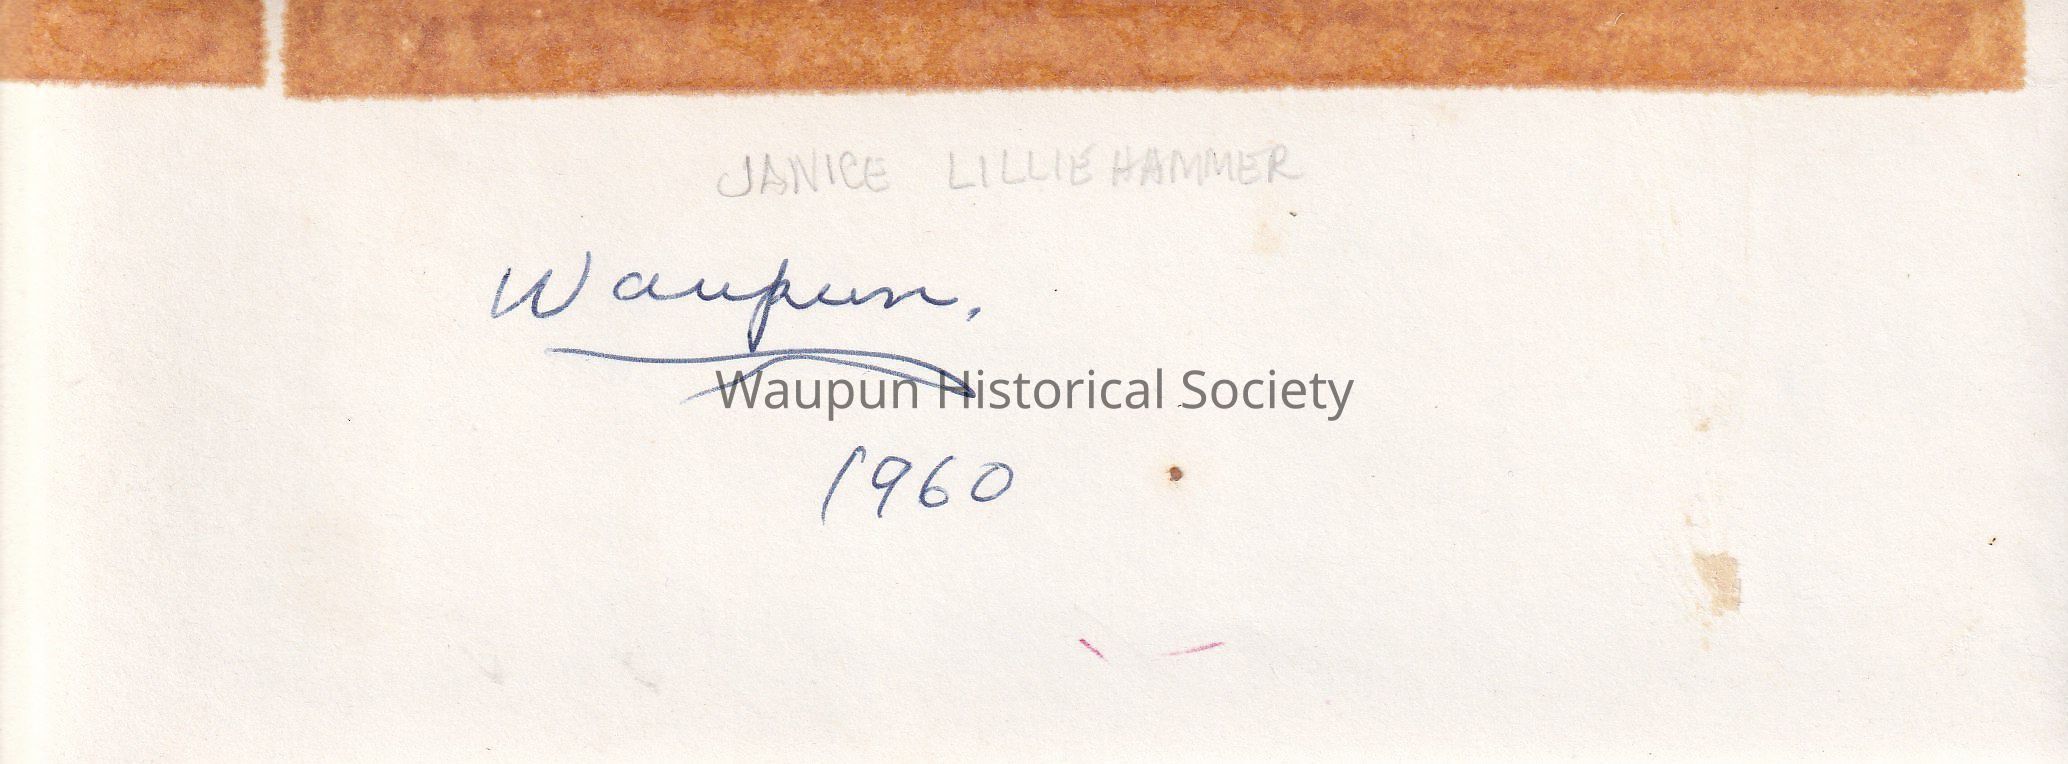 JANICE LILLIEHAMMER
Waupun.
Waupun Historical Society
1960